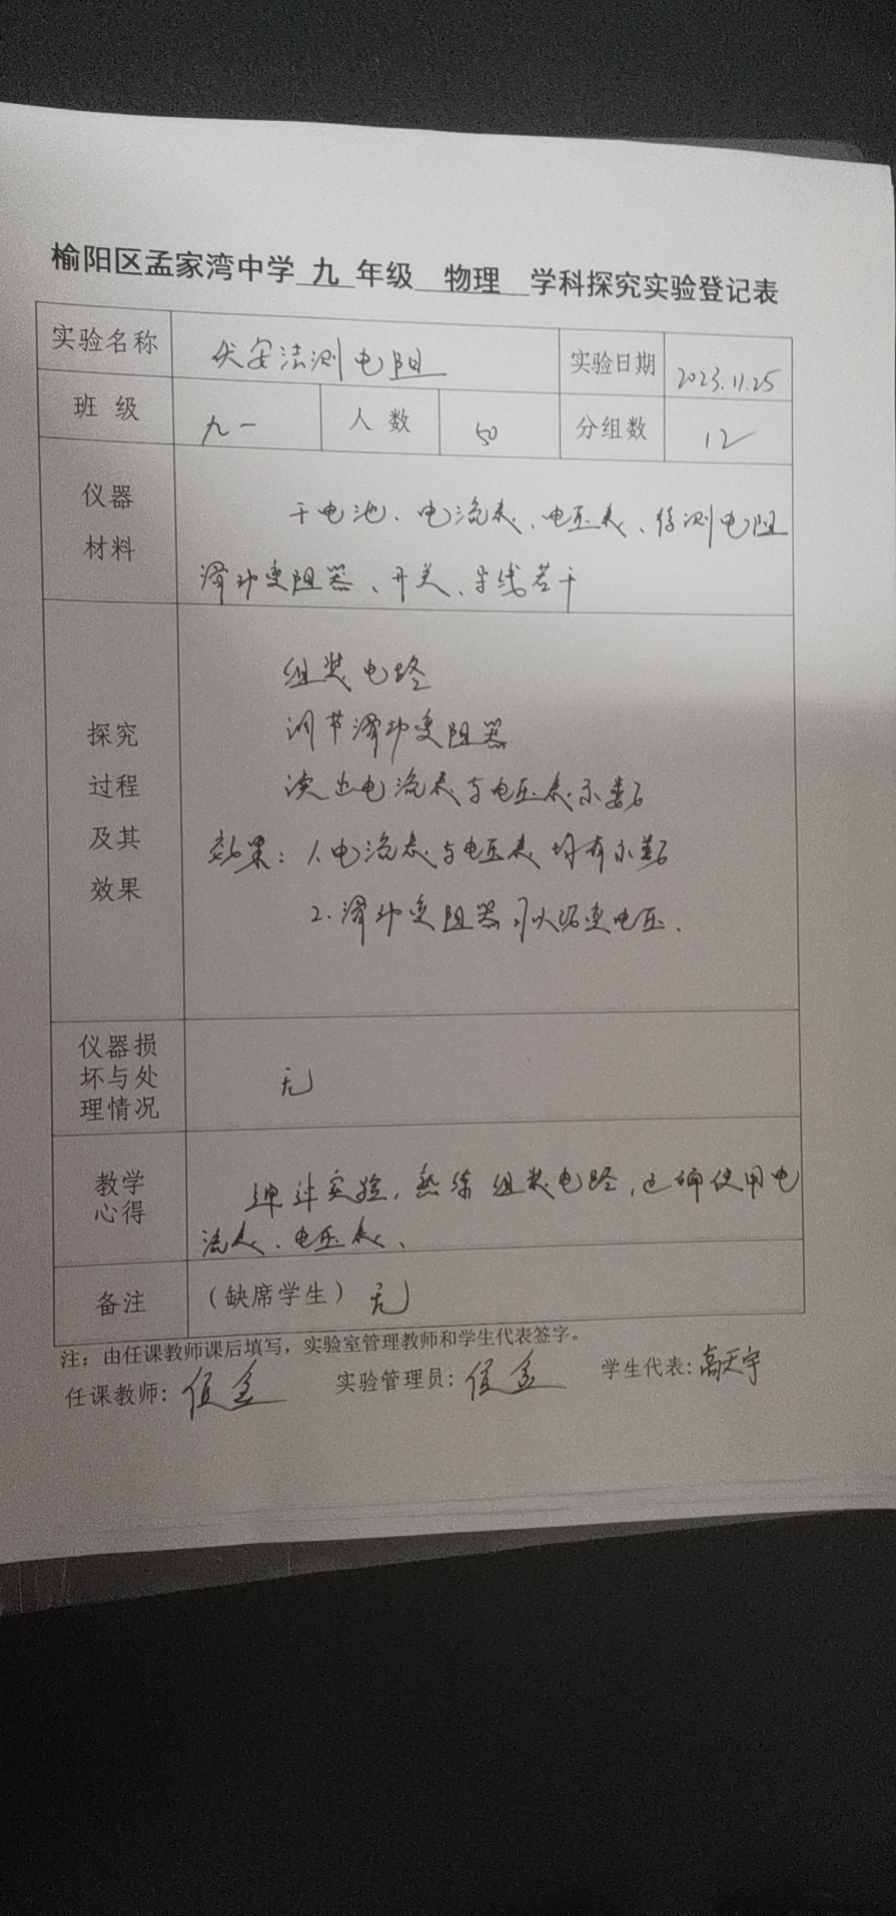 榆阳区孟家湾中学 九 年级 物理 学科探究实验登记表
实验名称 伏安法测电阻 实验日期 2023.11.25
班 级 九一 人 数 50 分组数 12
仪器材料 干电池、电流表、电压表、待测电阻
滑动变阻器、开关、导线若干
探究过程及其效果
组装电路
调节滑动变阻器
读出电流表与电压表示数
效果：1.电流表与电压表均有示数
2.滑动变阻器可以改变电压.
仪器损坏与处理情况 无
教学心得 实验，熟练组装电路，正确使用电
流表、电压表、
备注 （缺席学生）无
注：由任课教师课后填写，实验室管理教师和学生代表签字。
任课教师: 实验管理员: 学生代表: 高天宇